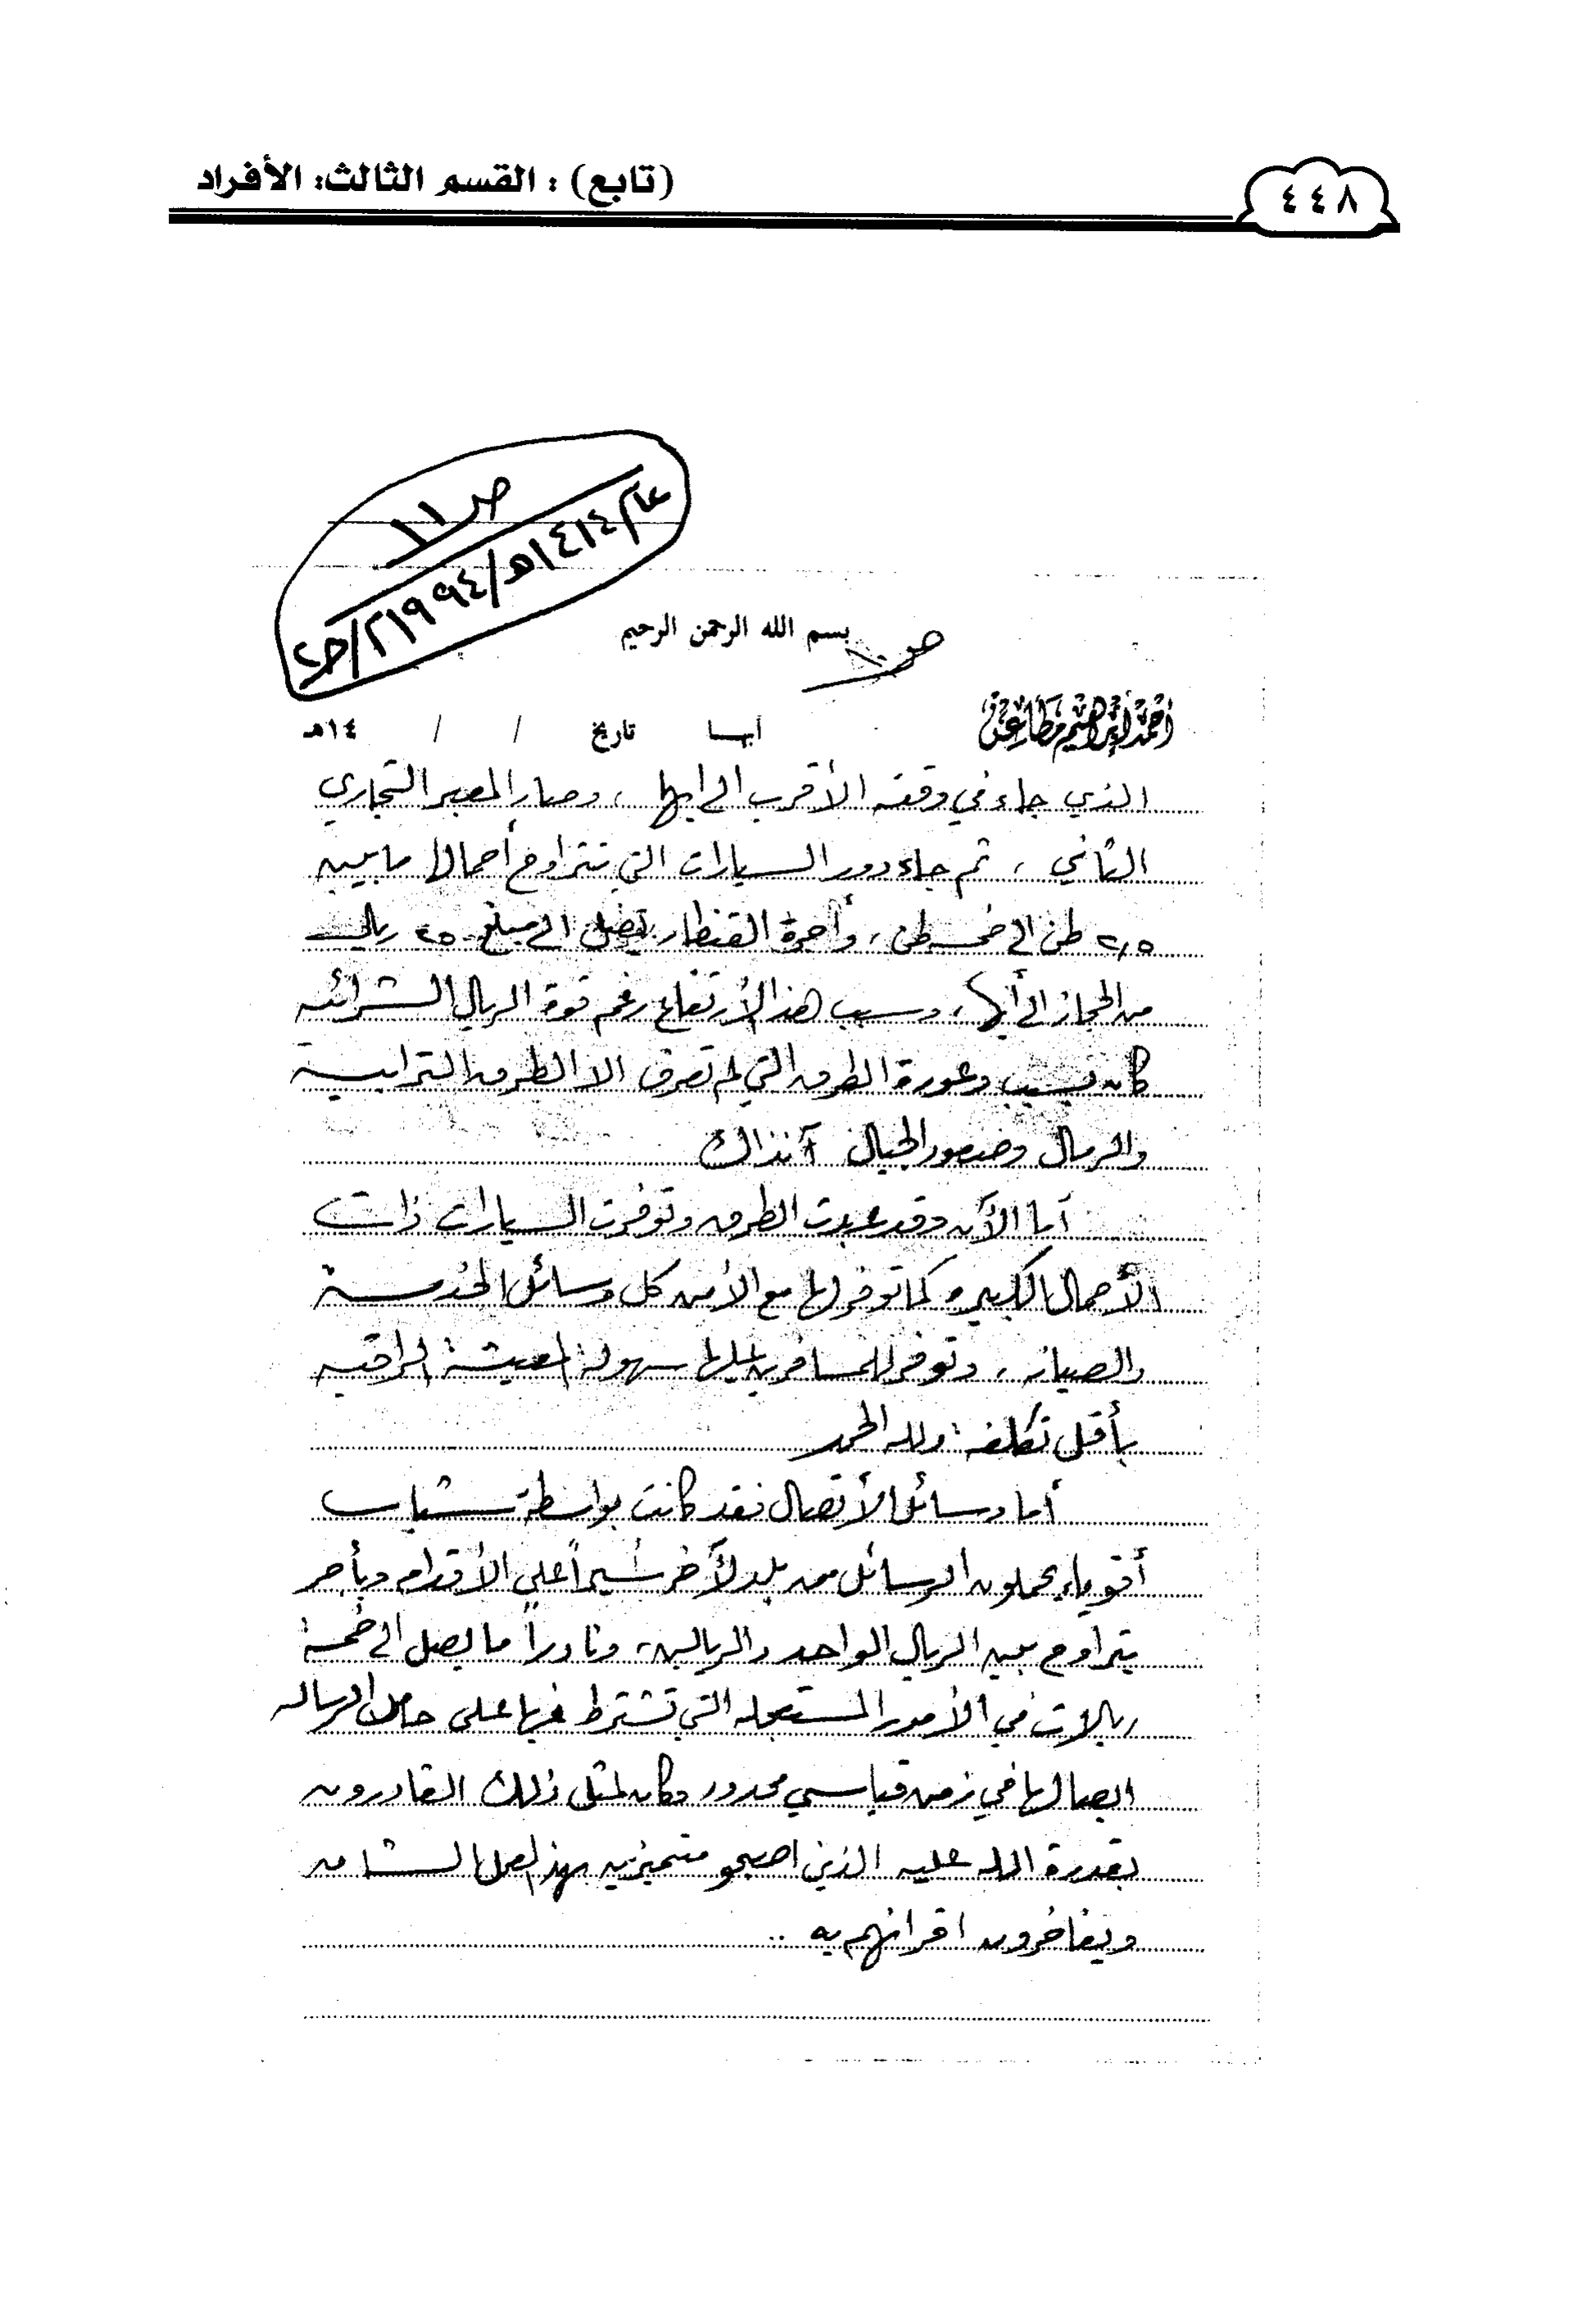 ٤٤٨
(تابع) : القسم الثالث: الأفراد
ص ١١
ع/١٤١٤هـ/١٩٩٤م/ح٢
بسم الله الرحمن الرحيم
ص ١٠
أحمد إبراهيم مطاعن
ابها تاريخ / / ١٤هـ
الذي جاء في وقته الأقرب الى ابها ، وصار المعبر التجاري
الثاني ، ثم جاء دور السيارات التي تتراوح أحمالها ما بين
٢,٥ طن الى خمسة طن ، وأجرة القنطار يصل الى مبلغ ٢٥ ريال
من الحجاز الى أبها ، وسبب هذا الأرتفاع رغم قوة الريال الشرائيه
كان بسبب وعورة الطرق التي لم تعرف الا الطرق الترابية
والرمال وصخور الجبال آنذاك
أما الآن وقد عبدت الطرق وتوفرت السيارات ذات
الأحمال الكبيره كما توفر لها مع الأمن كل وسائل الخدمة
والصيانه ، وتوفر للمسافرين عليها سهولة المعيشة الراقيه
بأقل تكلفه ولله الحمد
أما وسائل الأتصال فقد كانت بواسطة شباب
أقوياء يحملون الرسائل من بلد لآخر سيراً على الأقدام وبأجر
يتراوح بين الريال الواحد والريالين ، ونادراً ما يصل الى خمسة
ريالات في الأمور المستعجله التي تشترط فيها على حامل الرساله
ايصالها في زمن قياسي محدود وكان لمثل ذلك القادرون
بقدرة الله عليه الذين اصبحو متميزين بهذا العمل الشاق
ويفاخرون اقرانهم به ..